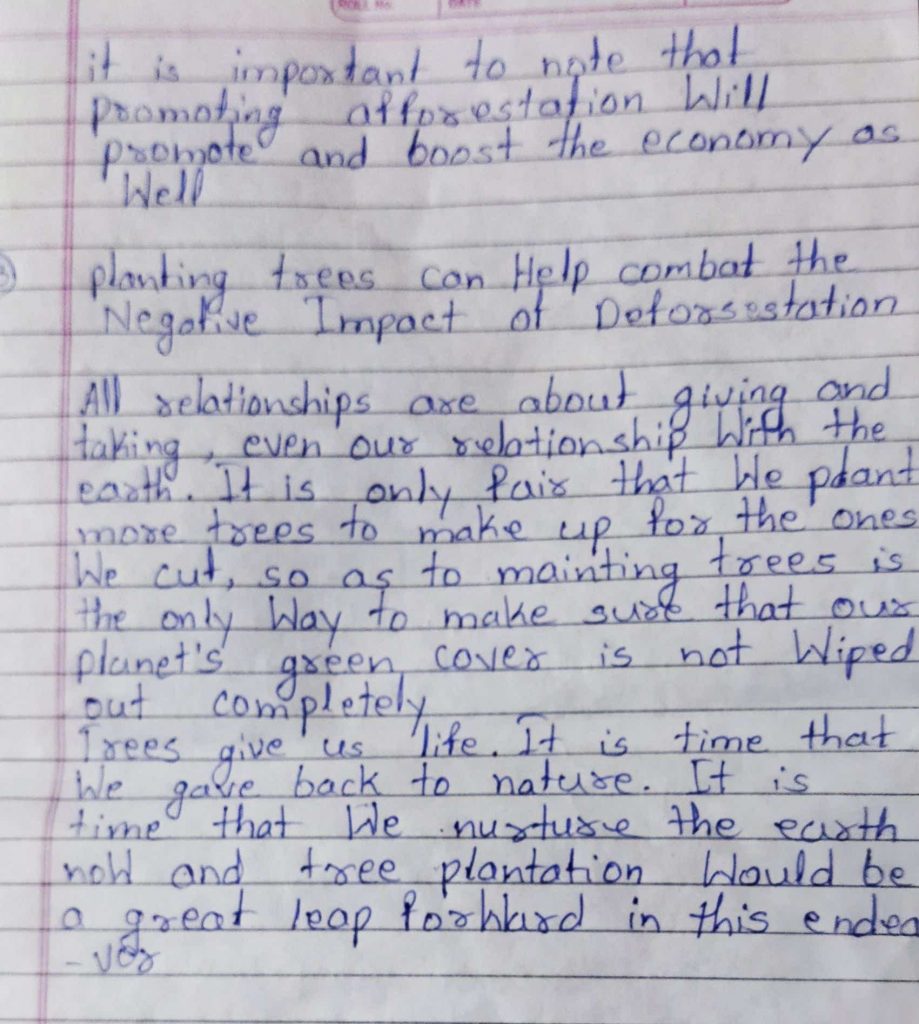 ROLL No.
DATE
it is important to note that
promoting afforestation Will
promote and boost the economy as
Well
planting trees can Help combat the
Negative Impact of Deforsestation
All relationships are about giving and
taking, even our relationship With the
earth. It is only fair that We plant
more trees to make up for the ones
We cut, so as to mainting trees is
the only Way to make sure that our
planet's green cover is not Wiped
out completely
Trees give us life. It is time that
We gave back to nature. It is
time that We nurture the earth
noW and tree plantation Would be
a great leap forWard in this endea
-vor